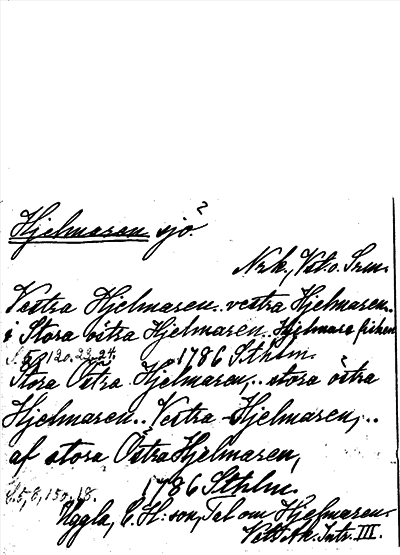 Hjelmaren sjö. 2
Nrk., Vst. o. Srm.
Vestra Hjelmaren.. vestra Hjelmaren..
i Stora östra Hjelmaren. Hjelmare fisken
1786 Sthlm.
Stora Östra Hjelmaren,.. stora östra
Hjelmaren.. Vestra Hjelmaren,..
af stora Östra Hjelmaren,
1786 Sthlm.
Uggla, C. H:son, Tal om Hjelmaren.
Vett. Ak. Intr. III.